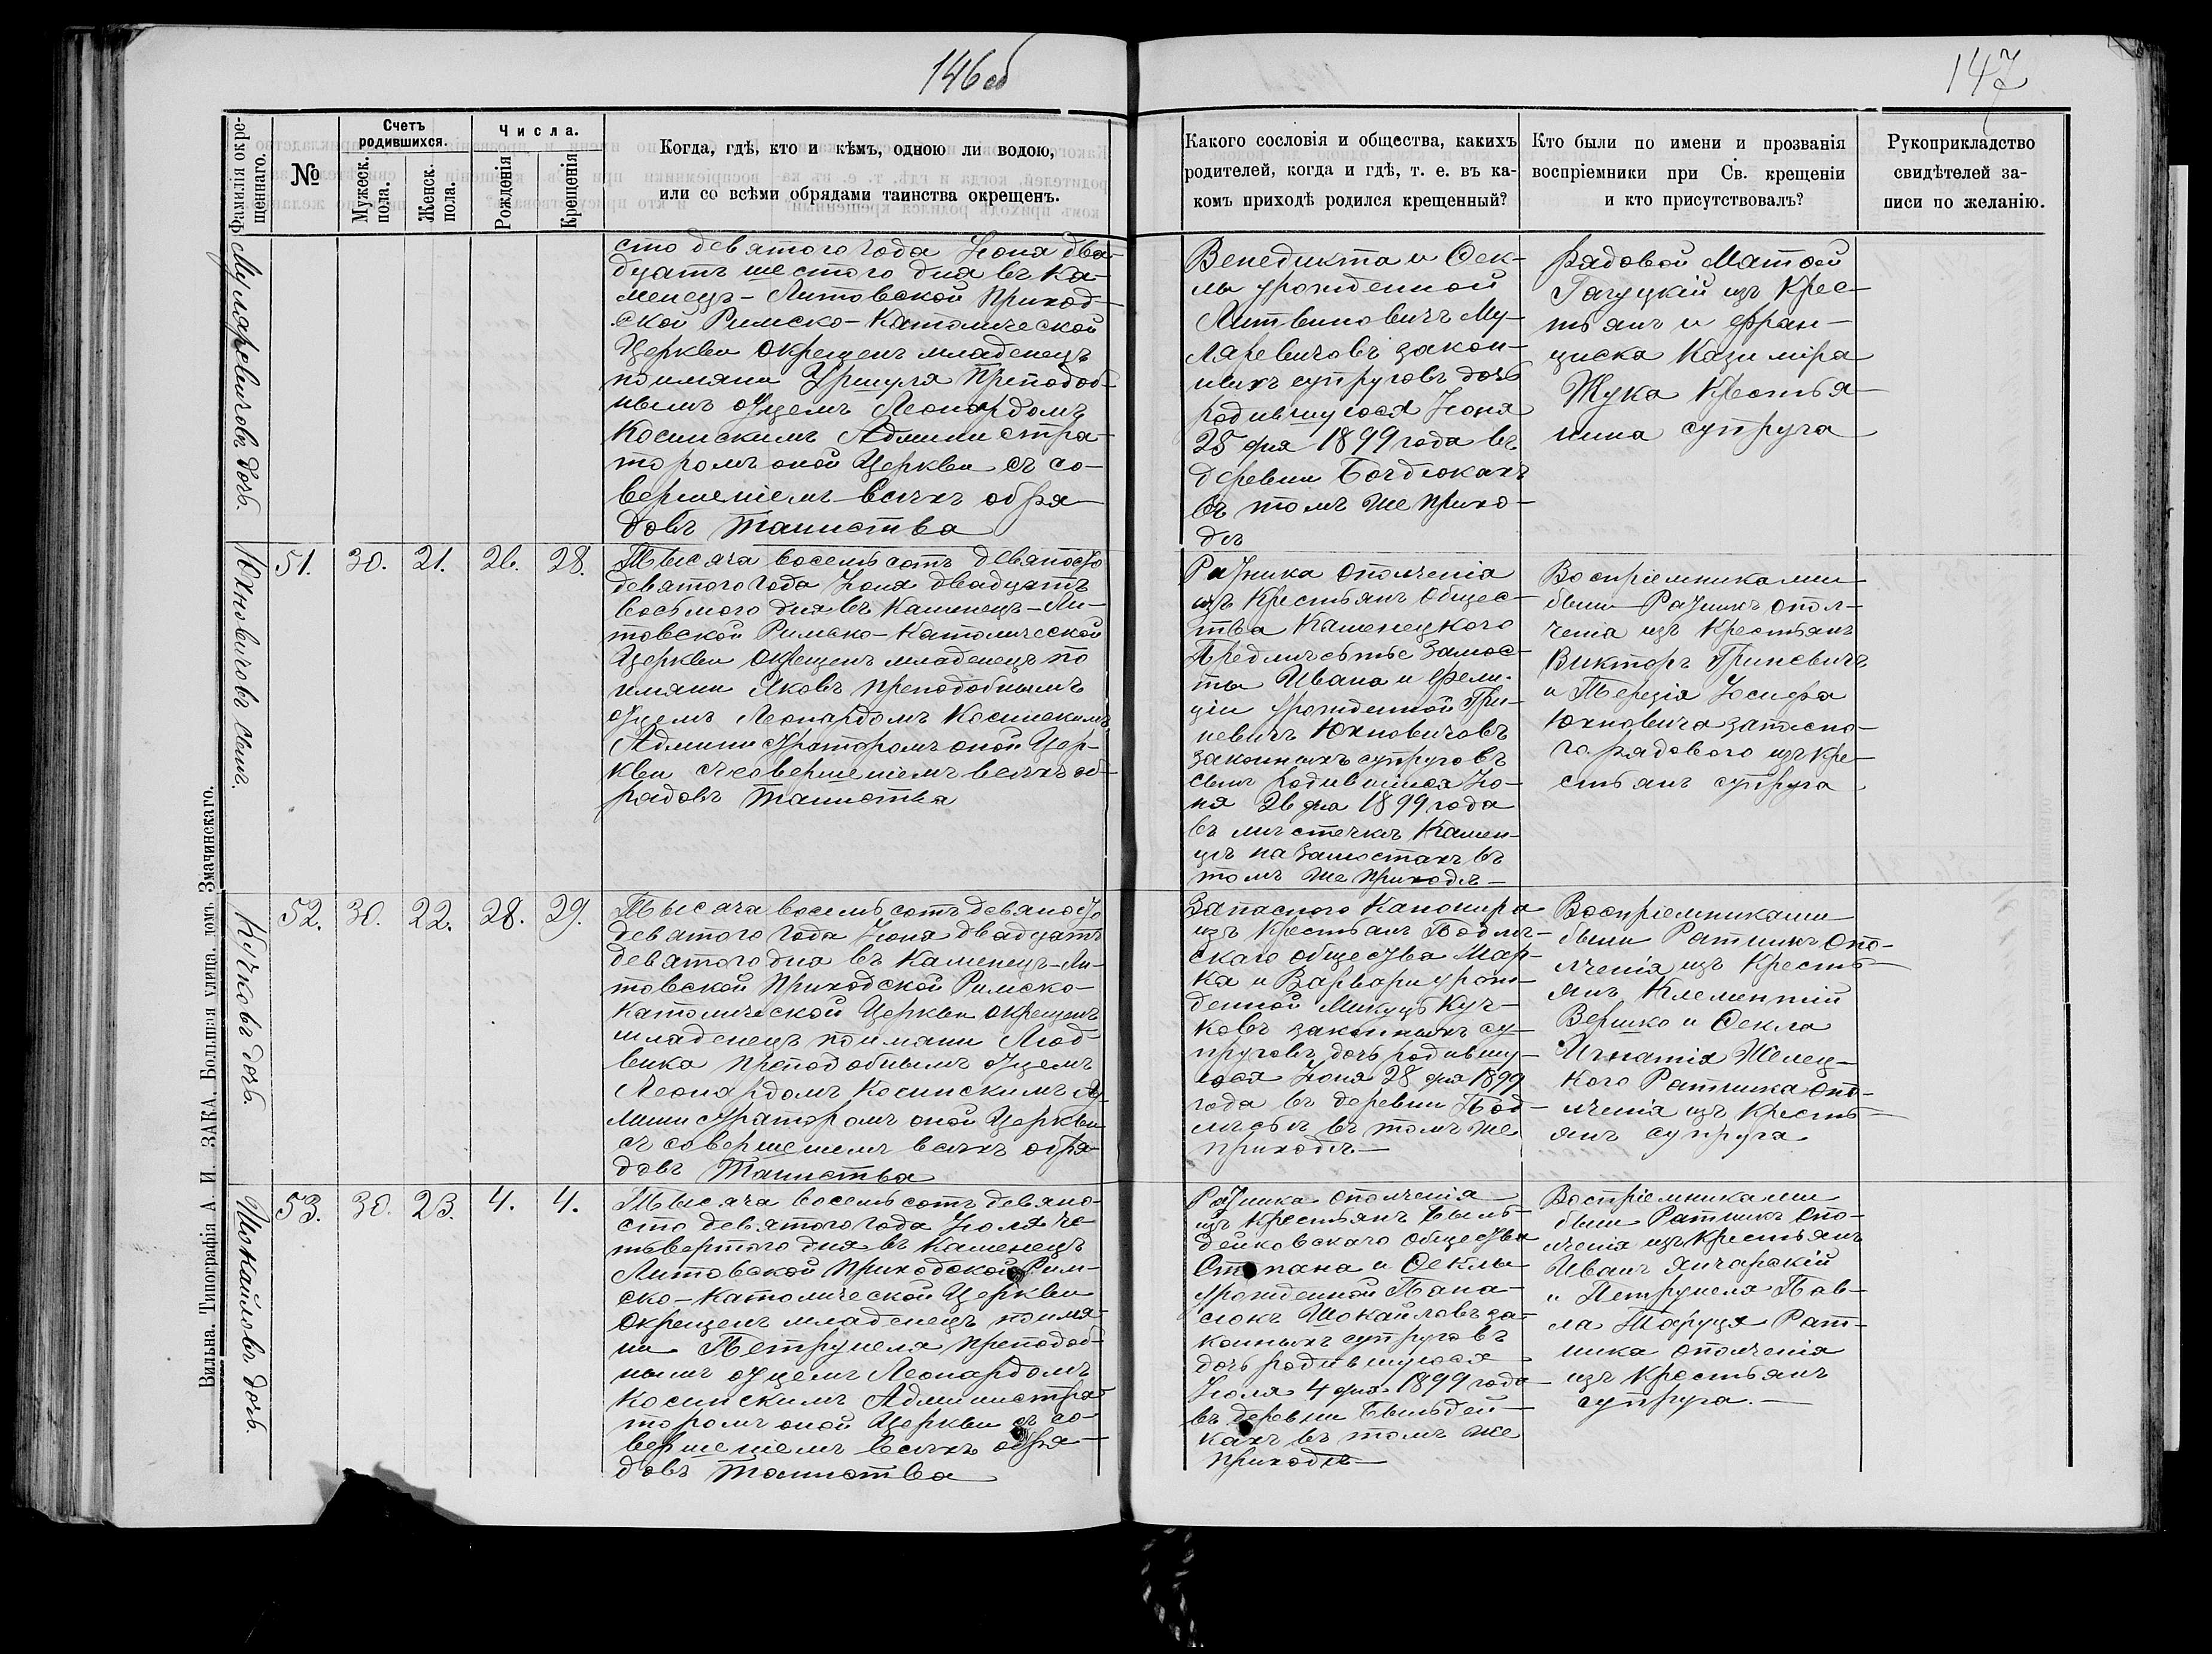 146 об
147
Фамилія окре-
щеннаго.
№
Счетъ
родившихся.
Мужеск.
пола.
Женск.
пола.
Числа.
Рожденія
Крещенія
Когда, гдѣ, кто и кѣмъ, одною ли водою,
или со всѣми обрядами таинства окрещенъ.
Какого сословія и общества, какихъ
родителей, когда и гдѣ, т. е. въ ка-
комъ приходѣ родился крещенный?
Кто были по имени и прозванія
воспріемники при Св. крещеніи
и кто присутствовалъ?
Рукоприкладство
свидѣтелей за-
писи по желанію.
Муляревичовъ дочь.
сто девятого года Іюня два-
дцать шестого дня въ Ка-
менецъ-Литовской приход-
ской Римско-Католической
Церкви окрещенъ младенецъ
по имяни Уршуля преподоб-
нымъ отцемъ Леонардомъ
Косинскимъ Администра-
торомъ оной Церкви съ со-
вершеніемъ всѣхъ обря-
довъ таинства
Венедикта и Ѳек-
лы урожденной
Литвиновичъ Му-
ляревичовъ закон-
ныхъ супруговъ дочь
родившуюся Іюня
25 дня 1899 года въ
деревни Богдюкахъ
въ томъ же прихо-
дѣ
рядовой Матѳей
Гагуцкій изъ Крес-
тьянъ и Фран-
циска Казиміра
Жука Крестья-
нина супруга
Юхновичовъ сынъ.
51. 30. 21. 26. 28.
Тысяча восемьсотъ девяносто
девятого года Іюня двадцать
восьмого дня въ Каменецъ-Ли-
товской Римско-Католической
Церкви окрещенъ младенецъ по
имяни Яковъ преподобнымъ
отцемъ Леонардомъ Косинскимъ
Администраторомъ оной Цер-
кви съ совершеніемъ всѣхъ об-
рядовъ таинства
Ратника ополченія
изъ Крестьянъ общес-
тва Каменецкого
Предмѣстье Замос-
ты Ивана и Фели-
ціи урожденной Гри-
невичъ Юхновичовъ
законныхъ супруговъ
сынъ родившійся Ію-
ня 26 дня 1899 года
въ мѣстечкѣ Камен-
цѣ на Замостахъ въ
томъ же приходѣ
Воспріемниками
были Ратникъ опол-
ченія изъ Крестьянъ
Викторъ Гриневичъ
и Терезія Іосифа
Юхновича запасно-
го рядового изъ Кре-
стьянъ супруга
Кучковъ дочь.
52. 30. 22. 28. 29.
Тысяча восемьсотъ девяносто
девятого года Іюня двадцать
девятого дня въ Каменецъ-Ли-
товской приходской Римско-
Католической Церкви окрещенъ
младенецъ по имяни Люд-
вика преподобнымъ отцемъ
Леонардомъ Косинскимъ Ад-
министраторомъ оной Церкви
съ совершеніемъ всѣхъ обря-
довъ Таинства
Запасного Канонира
изъ Крестьянъ Подлѣ-
скаго общества Мар-
ка и Варвары урож-
денной Микуць Куч-
ковъ законныхъ су-
пруговъ дочь родившу-
юся Іюня 28 дня 1899
года въ деревни Под-
лѣсьѣ въ томъ же
приходѣ
Воспріемниками
были Ратникъ опо-
лченія изъ Кресть-
янъ Клементій
Вершко и Ѳекла
Игнатія Желез-
кого Ратника опо-
лченія изъ Кресть-
янъ супруга
Шокайловъ дочь.
53. 30. 23. 4. 4.
Тысяча восемьсотъ девяно-
сто девятого года Іюля че-
тьвертого дня въ Каменецъ
Литовской приходской Рим-
ско-Католической Церкви
окрещенъ младенецъ по имя-
ни Петрунеля преподоб-
нымъ отцемъ Леонардомъ
Косинскимъ Администра-
торомъ оной Церкви съ со-
вершеніемъ всѣхъ обря-
довъ таинства
Ратника ополченія
изъ Крестьянъ Свинь-
дейковскаго общества
Степана и Ѳеклы
урожденной Пана-
сюкъ Шокайловъ за-
конныхъ супруговъ
дочь родившуюся
Іюля 4 дня 1899 года
въ деревни
кахъ въ томъ же
приходѣ
Воспріемниками
были Ратникъ опо-
лченія изъ Крестьянъ
Иванъ Янчарскій
и Петрунеля Пав-
ла Ратника ополченія
изъ Крестьянъ
супруга.
Вильна. Типографія А. И. ЗАКА, Большая улица, домъ Змачинскаго.